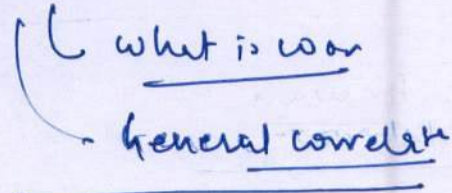 what is war
General correlate